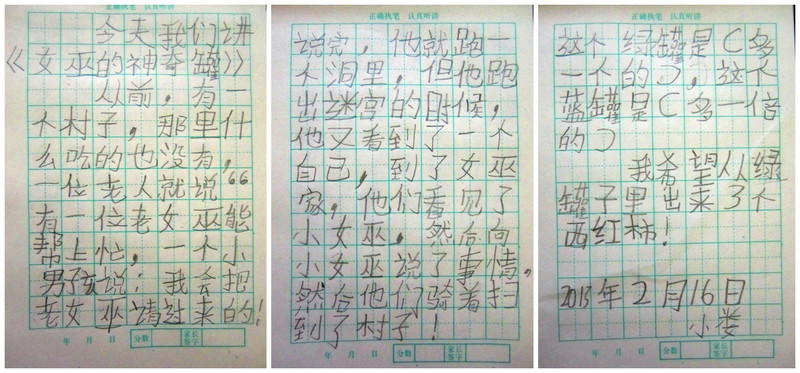 今天我们讲
《女巫的神奇罐》
从前，有一
个村子，那里什
么吃的也没有，
一位老人就说“
有一位老女巫能
帮上忙，一个小
男孩说：我会把
老女巫请过来的！
年 月 日 分数 家长签字
正确执笔 认真听讲
说完，他就跑一
个洞里，但他跑
出迷宫的时候，
他又看到了一个
自己，到了女巫
家，他们看见了
小女巫，然后向
小女巫说了事情，
然后他们骑着扫
到了村子！
年 月 日 分数 家长签字
正确执笔 认真听讲
这个绿罐是C多
一个的Ɔ，这个
蓝罐是C多一倍
的Ɔ
我希望从绿
罐子里出来了个
西红柿！
2013年2月16日
小娄
年 月 日 分数 家长签字